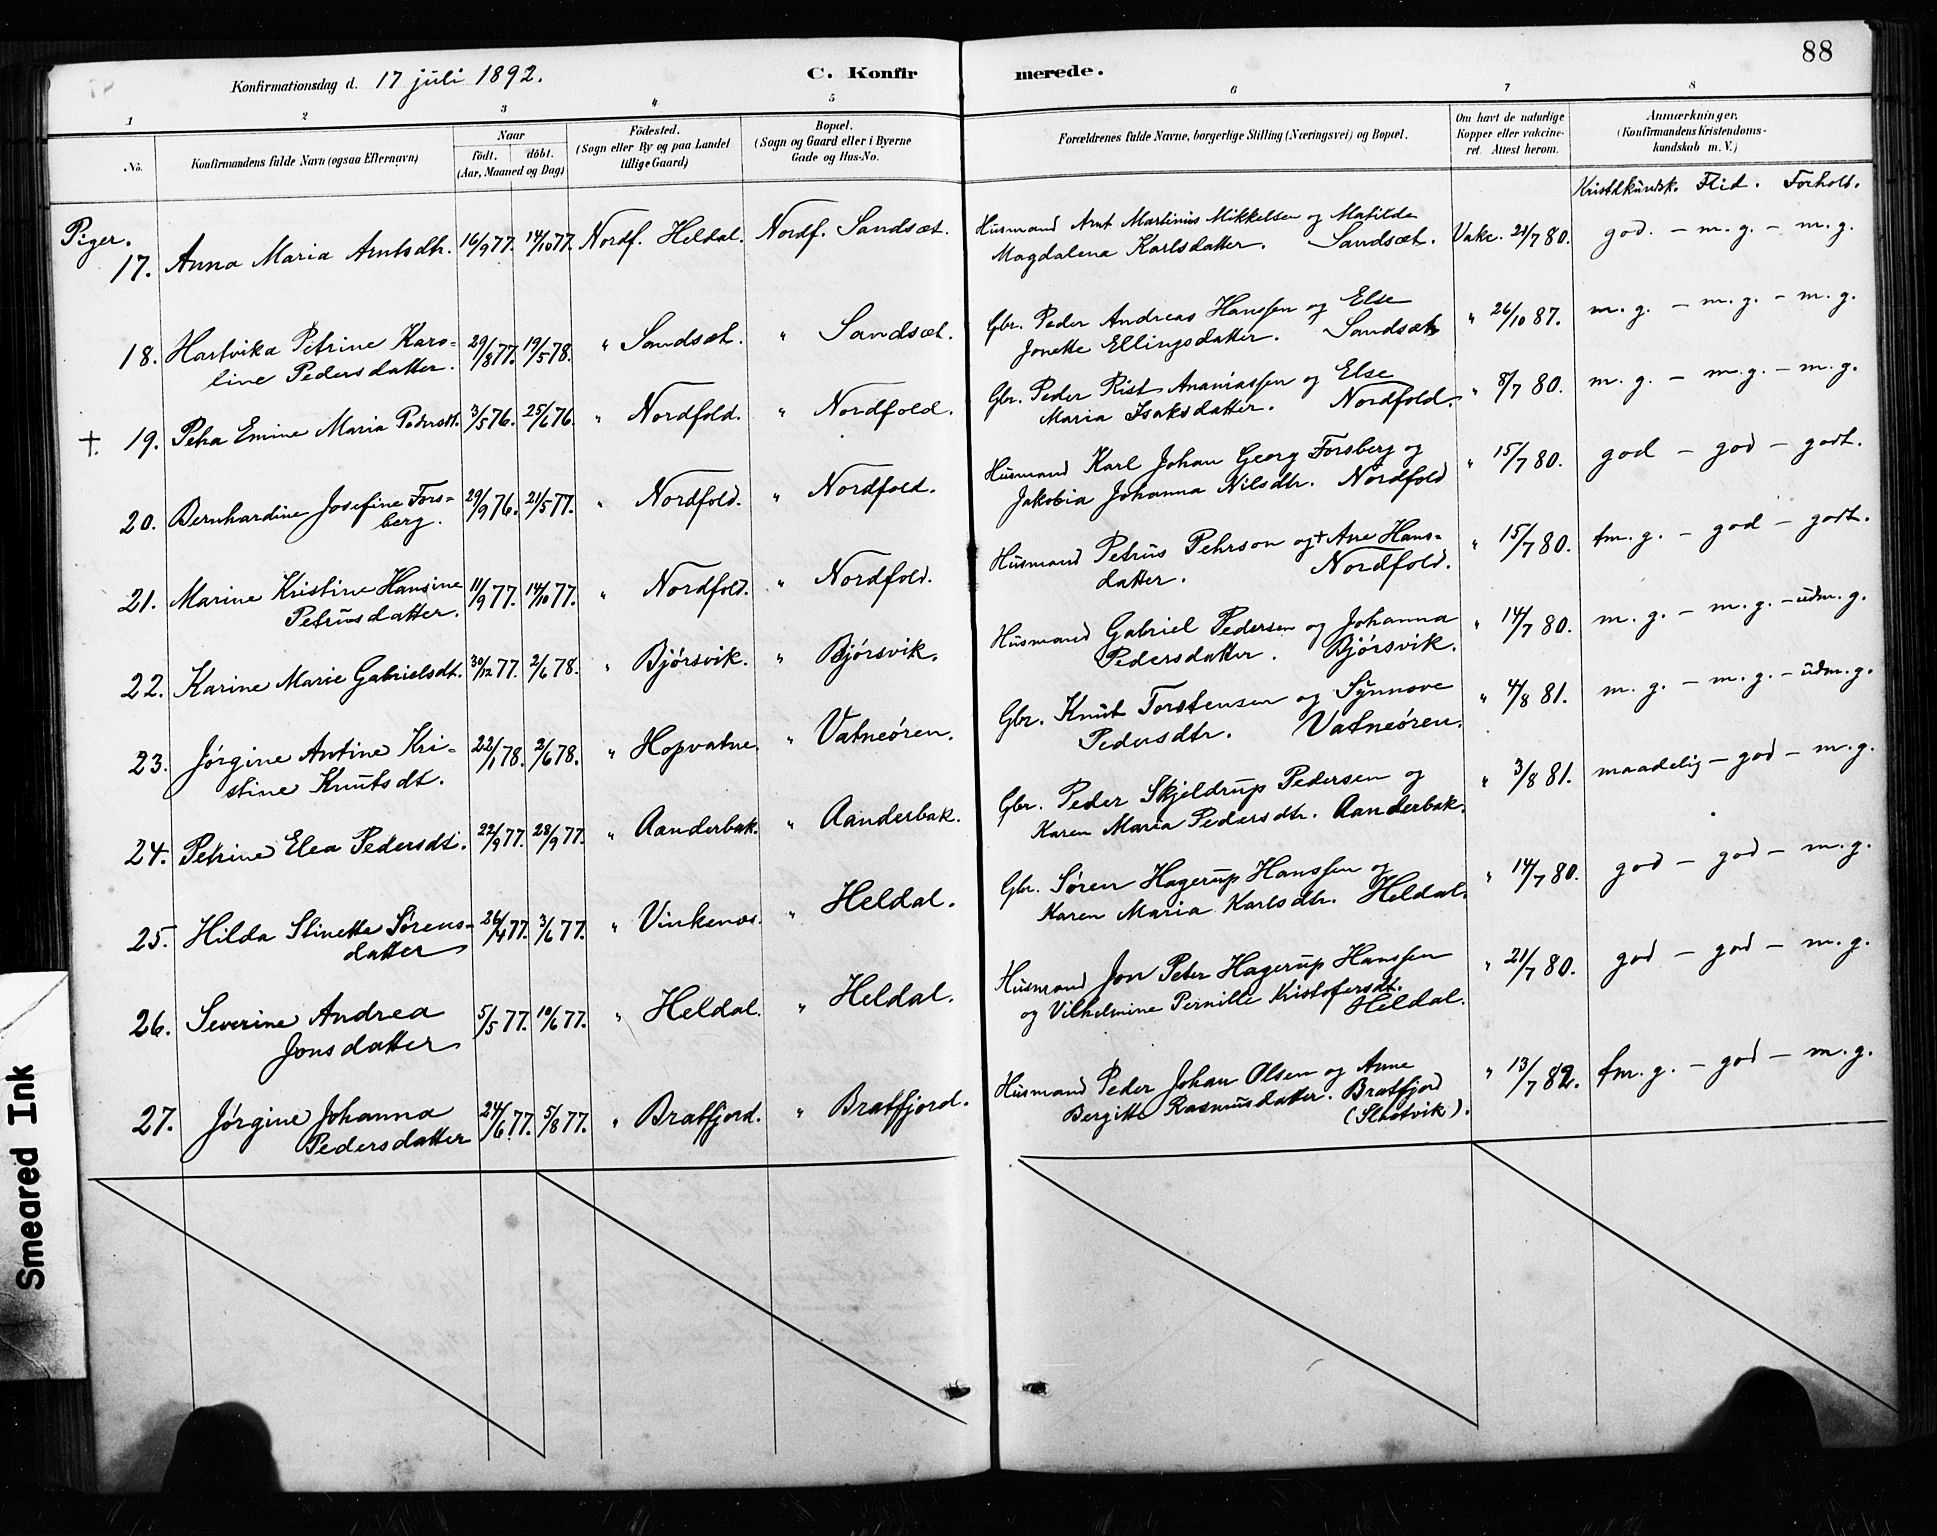 88
Konfirmationsdag d. 17 juli 1892. C. Konfirmerede.
1 2 3 4 5 6 7 8
No. Konfirmandens fulde Navn (ogsaa Efternavn) Naar født. døbt. (Aar, Maaned og Dag) Fødested. (Sogn eller By og paa Landet tillige Gaard) Bopæl. (Sogn og Gaard eller i Byerne Gade og Hus-No. Forældrenes fulde Navne, borgerlige Stilling (Næringsvei) og Bopæl. Om havt de naturlige Kopper eller vakcineret. Attest herom. Anmærkninger. (Konfirmandens Kristendomskundskab m. V.)
Kristdkundsk. Flid. Forhold.
Piger.
17. Anna Maria Arntsdtr. 16/9 77. 14/10 77. Nordf. Heldal. Nordf. Sandsæt. Husmand Arnt Martinus Mikkelsen og Matilde Vakc. 21/7 80. god. - m. g. - m. g.
Magdalena Karlsdatter. Sandsæt.
18. Hartvika Petrine Karo- 29/8 77. 19/5 78. " Sandsæt. " Sandsæt. Gbr. Peder Andreas Hanssen og Else " 26/10 87. m. g. - m. g. - m. g.
line Pedersdatter. Jonette Ellingsdatter. Sandsæt
+ 19. Peha Emine Maria Pedersdt. 3/5 76. 25/6 76. " Nordfold. " Nordfold. Gbr. Peder Rist Ananiassen og Else " 8/7 80. m. g. - m. g. - m. g.
Maria Isaksdatter. Nordfold.
20. Bernhardine Josefine Fors- 29/9 76. 21/5 77. " Nordfold. " Nordfold. Husmand Karl Johan Georg Forsberg og " 15/7 80. god - god - godt.
berg. Jakobia Johanna Nilsdtr. Nordfold
21. Marine Kristine Hansine 11/9 77. 14/10 77. " Nordfold. " Nordfold. Husmand Petrus Pehrson og + Ane Hans- " 15/7 80. tm. g. - god - godt.
Petrusdatter. datter. Nordfold.
22. Karine Marie Gabrielsdt. 30/12 77. 2/6 78. " Bjørsvik. " Bjørsvik. Husmand Gabriel Pedersen og Johanna " 14/7 80. m. g. - m. g. - udm. g.
Pedersdatter. Bjørsvik.
23. Jørgine Antine Kri- 22/1 78. 2/6 78. " Hopvatne. " Vatneøren. Gbr. Knut Torstensen og Synnove " 4/8 81. m. g. - m. g. - udm. g.
stine Knutsdt. Pedersdtr. Vatneøren.
24. Petrine Elea Pedersdt. 22/9 77. 28/9 77. " Aanderbak. " Aanderbak. Gbr. Peder Skjeldrup Pedersen og " 3/8 81. maadelig - god - m. g.
Karen Maria Pedersdtr. Aanderbak.
25. Hilda Stinette Sørens- 26/4 77. 3/6 77. " Vinkenæs. " Heldal. Gbr. Søren Hagerup Hanssen og " 14/7 80. god - god - m. g.
datter Karen Maria Karlsdtr. Heldal.
26. Severine Andrea 5/5 77. 10/6 77. " Heldal. " Heldal. Husmand Jon Peter Hagerup Hanssen " 21/7 80. god - god - m. g.
Jonsdatter og Vilhelmine Pernille Kristofersdt. Heldal.
27. Jørgine Johanna 24/6 77. 5/8 77. " Bratfjord. " Bratfjord. Husmand Peder Johan Olsen og Anne " 13/7 82. tm. g. - god - m. g.
Pedersdatter Bergitte Rasmusdatter. Bratfjord
(Slaatvik).
Smeared Ink